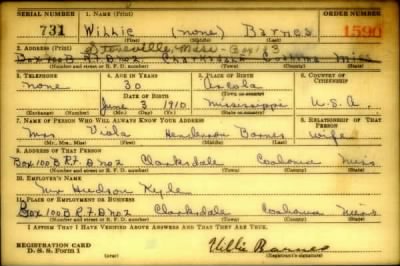 SERIAL NUMBER 1. NAME (Print) ORDER NUMBER
731 Willie (none) Barnes 1590
(First) (Middle) (Last)
2. ADDRESS (Print) Miss - Box 163
Box 100 B R.F.D. no 2 Clarksdale Coahoma Miss
(Number and street or R. F. D. number) (Town) (County) (State)
3. TELEPHONE 4. AGE IN YEARS 5. PLACE OF BIRTH 6. COUNTRY OF CITIZENSHIP
none 30 Arcola
DATE OF BIRTH (Town or county)
June 3 1910 Mississippi U.S.A.
(Exchange) (Number) (Mo.) (Day) (Yr.) (State or country)
7. NAME OF PERSON WHO WILL ALWAYS KNOW YOUR ADDRESS 8. RELATIONSHIP OF THAT PERSON
Mrs Viola Henderson Barnes wife
(Mr., Mrs., Miss) (First) (Middle) (Last)
9. ADDRESS OF THAT PERSON
Box 100 B R.F.D no 2 Clarksdale Coahoma Miss
(Number and street or R. F. D. number) (Town) (County) (State)
10. EMPLOYER'S NAME
Mr Hudson Kyle
11. PLACE OF EMPLOYMENT OR BUSINESS
Box 100 B R.F.D no 2 Clarksdale Coahoma Miss
(Number and street or R. F. D. number) (Town) (County) (State)
I AFFIRM THAT I HAVE VERIFIED ABOVE ANSWERS AND THAT THEY ARE TRUE.
REGISTRATION CARD Willie Barnes
D. S. S. Form 1 (over) (Registrant's signature)